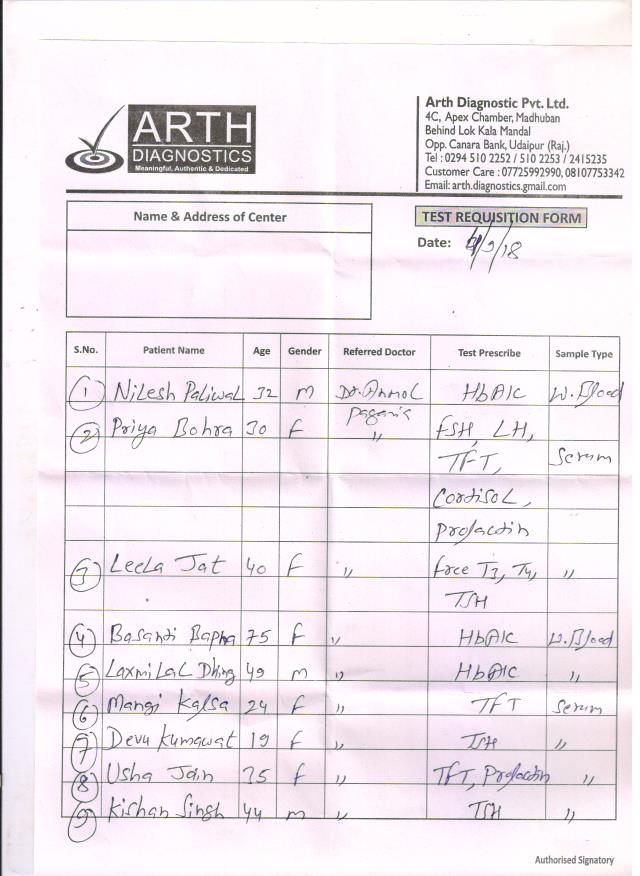 ARTH
DIAGNOSTICS
Meaningful, Authentic & Dedicated
Arth Diagnostic Pvt. Ltd.
4C, Apex Chamber, Madhuban
Behind Lok Kala Mandal
Opp. Canara Bank, Udaipur (Raj.)
Tel : 0294 510 2252 / 510 2253 / 2415235
Customer Care : 07725992990, 08107753342
Email: arth.diagnostics.gmail.com
Name & Address of Center
TEST REQUISITION FORM
Date: /9/18
S.No. Patient Name Age Gender Referred Doctor Test Prescribe Sample Type
1 Nilesh Paliwal 32 m Dr. Anmol HbA1c W. Blood
Pagaria
2 Priya Bohra 30 f " FSH, LH,
TFT, Serum
Cortisol,
Prolactin
3 Leela Jat 40 f " free T3, T4, "
TSH
4 Basanti Bapna 75 f " HbA1c W. Blood
5 Laxmi Lal Dhing 49 m " HbA1c "
6 Mangi Kalsa 24 f " TFT Serum
7 Devu Kumawat 19 f " TSH "
8 Usha Jain 35 f " TFT, Prolactin "
9 Kishan Singh 44 m " TSH "
Authorised Signatory